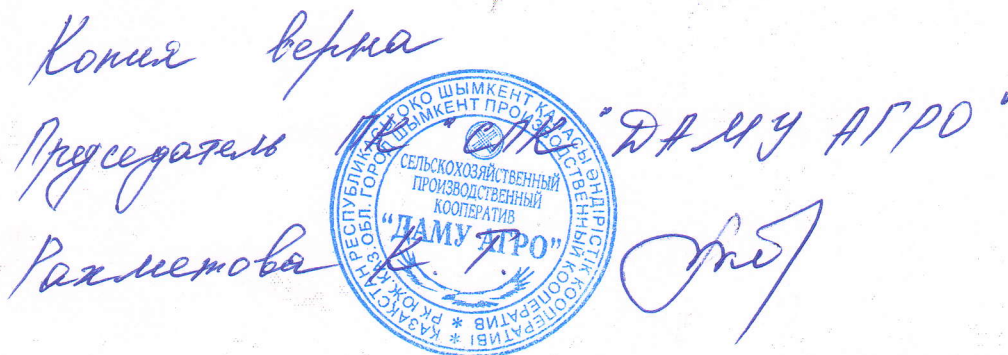 Копия верна
Председатель ПК "СПК "ДАМУ АГРО"
Рахметова К. Т.
ҚАЗАҚСТАН РЕСПУБЛИКАСЫ ОҚО ШЫМКЕНТ ҚАЛАСЫ ӨНДІРІСТІК КООПЕРАТИВІ
РК ЮЖ.КАЗ.ОБЛ. ГОРОД ШЫМКЕНТ ПРОИЗВОДСТВЕННЫЙ КООПЕРАТИВ
СЕЛЬСКОХОЗЯЙСТВЕННЫЙ
ПРОИЗВОДСТВЕННЫЙ
КООПЕРАТИВ
"ДАМУ АГРО"